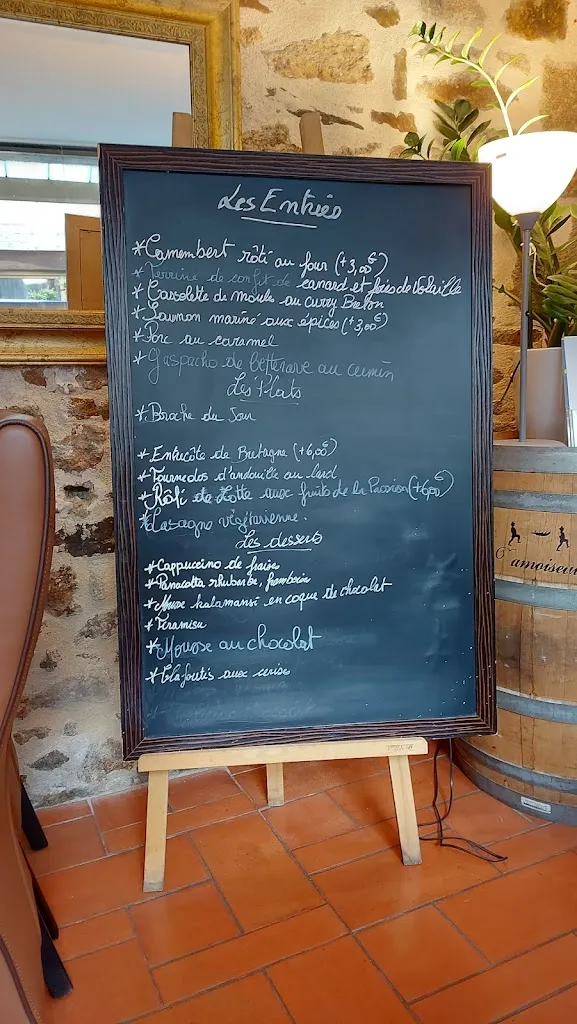 Les Entrées
*Camembert rôti au four (+3,00€)
*Terrine de confit de canard et foies de Volaille
*Cassolette de moule au curry Breton
*Saumon mariné aux épices (+3,00€)
*Porc au caramel
*Gaspacho de betterave au cumin
Les Plats
*Broche du Jour
*Entrecôte de Bretagne (+6,00€)
*Tournedos d'andouille au lard
*Rôti de Lotte aux fruits de la Passion (+6,00€)
*Lasagne végétarienne.
Les desserts
*Cappuccino de fraise
*Panacotta rhubarbe, framboise
*Mousse kalamansi en coque de chocolat
*Tiramisu
*Mousse au chocolat
*Clafoutis aux cerises